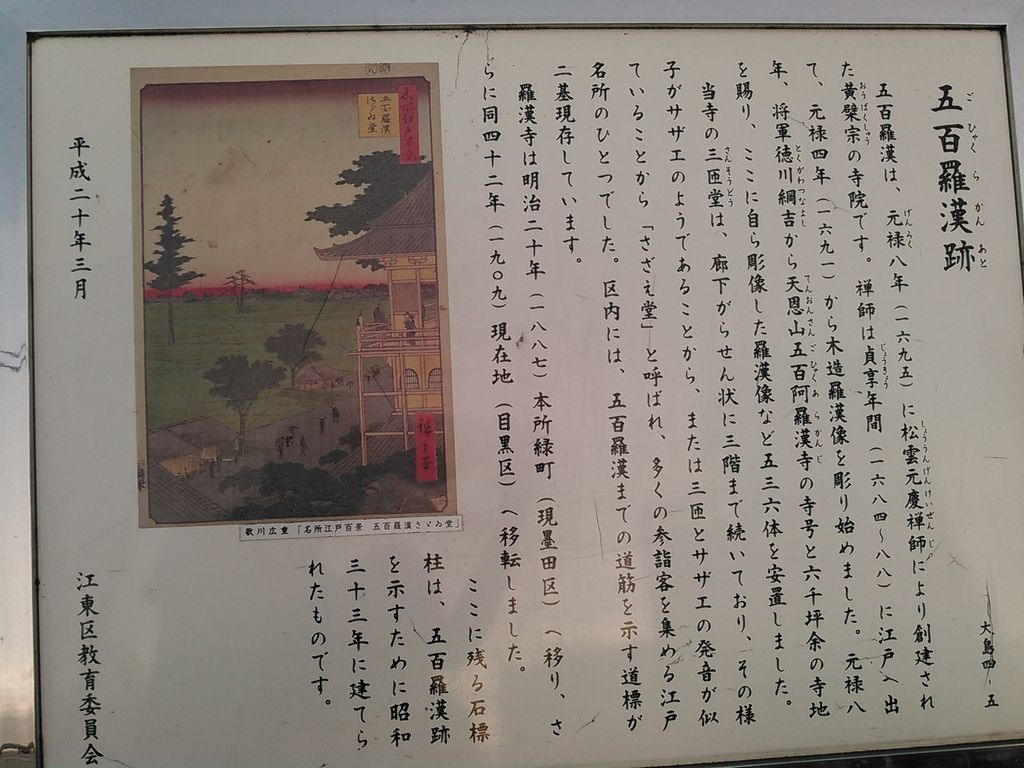 大島四‐五
五百羅漢跡
ご ひゃく ら かん あと
五百羅漢は、元禄八年（一六九五）に松雲元慶禅師により創建され
た黄檗宗の寺院です。禅師は貞享年間（一六八四～八八）に江戸へ出
て、元禄四年（一六九一）から木造羅漢像を彫り始めました。元禄八
年、将軍徳川綱吉から天恩山五百阿羅漢寺の寺号と六千坪余の寺地
を賜り、ここに自ら彫像した羅漢像など五三六体を安置しました。
当寺の三匝堂は、廊下がらせん状に三階まで続いており、その様
子がサザエのようであることから、または三匝とサザエの発音が似
ていることから「さざえ堂」と呼ばれ、多くの参詣客を集める江戸
名所のひとつでした。区内には、五百羅漢までの道筋を示す道標が
二基現存しています。
羅漢寺は明治二十年（一八八七）本所緑町（現墨田区）へ移り、さ
らに同四十二年（一九〇九）現在地（目黒区）へ移転しました。
ここに残る石標
柱は、五百羅漢跡
を示すために昭和
三十三年に建てら
れたものです。
名所江戸百景
五百羅漢
さゞゐ堂
廣重画
歌川広重「名所江戸百景 五百羅漢さゞゐ堂」
平成二十年三月
江東区教育委員会